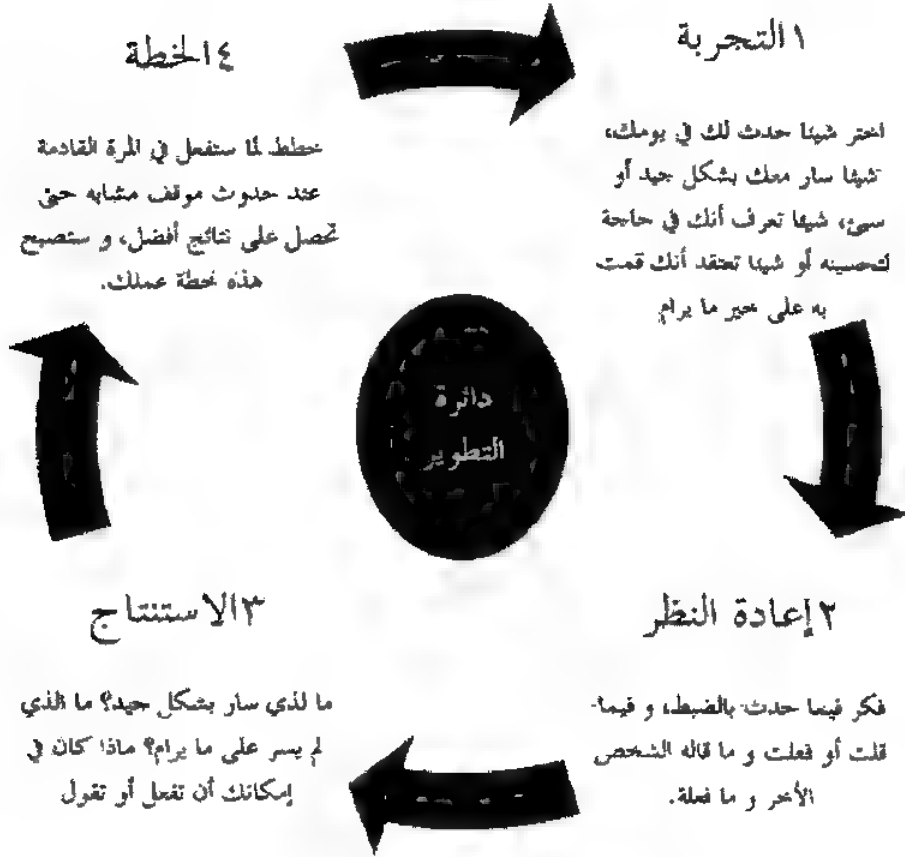 ١ التجربة
اختر شيئا حدث لك في يومك،
شيئا سار معك بشكل جيد أو
سيئ، شيئا تعرف أنك في حاجة
لتحسينه أو شيئا تعتقد أنك قمت
به على خير ما يرام
٢ إعادة النظر
فكر فيما حدث بالضبط، و فيما
قلت أو فعلت و ما قاله الشخص
الأخر و ما فعلة.
٣ الاستنتاج
ما لذي سار بشكل جيد؟ ما الذي
لم يسر على ما يرام؟ ماذا كان في
إمكانك أن تفعل أو تقول
٤ الخطة
خطط لما ستفعل في المرة القادمة
عند حدوث موقف مشابه حتى
تحصل على نتائج أفضل، و ستصبح
هذه خطة عملك.
دائرة
التطوير